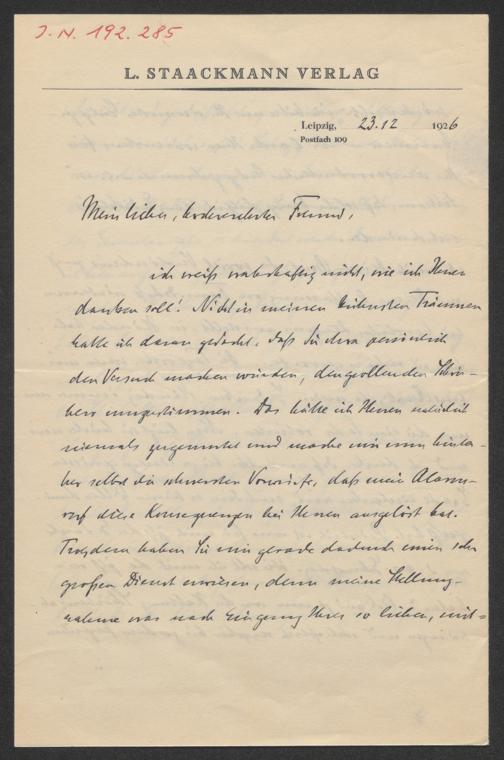 J.N. 192.285
L. STAACKMANN VERLAG
Leipzig, 23.12 1926
Postfach 109
Mein lieber, hochverehrter Freund,
ich weiß wahrhaftig nicht, wie ich Ihnen
danken soll! Nicht in meinen kühnsten Träumen
hatte ich daran gedacht, daß Sie etwa persönlich
den Versuch machen würden, den grollenden
umzustimmen. Das hätte ich Ihnen natürlich
niemals zugemutet und mache mir nun hinter-
her selbst die schwersten Vorwürfe, daß mein Alarm-
ruf diese Konsequenzen bei Ihnen ausgelöst hat.
Trotzdem haben Sie mir gerade dadurch einen sehr
großen Dienst erwiesen, denn meine Stellung-
nahme war nach Eingang Ihres so lieben,